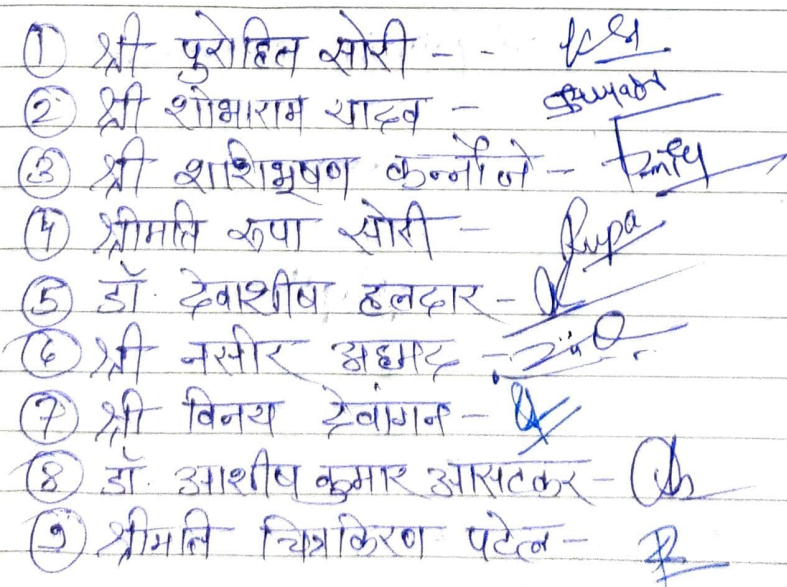 ① श्री पुरोहित सोरी - -
② श्री शोभाराम यादव -
③ श्री शशिभूषण कन्नौजे -
④ श्रीमति रूपा सोरी - Rupa
⑤ डॉ. देवाशीष हलदार -
⑥ श्री नसीर अहमद -
⑦ श्री विनय देवांगन -
⑧ डॉ. आशीष कुमार आसटकर -
⑨ श्रीमति चित्रकिरण पटेल -